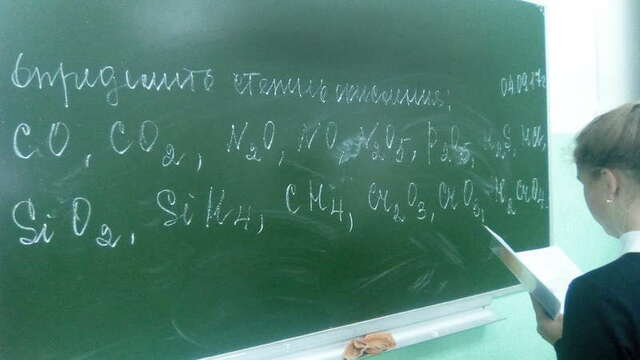 Определить степень окисления; 04.09.17г
CO, CO₂, N₂O, NO, N₂O₅, P₂O₅, H₂S,
SiO₂, SiH₄, CH₄, Cr₂O₃, CrO₃, H₂CrO₄.